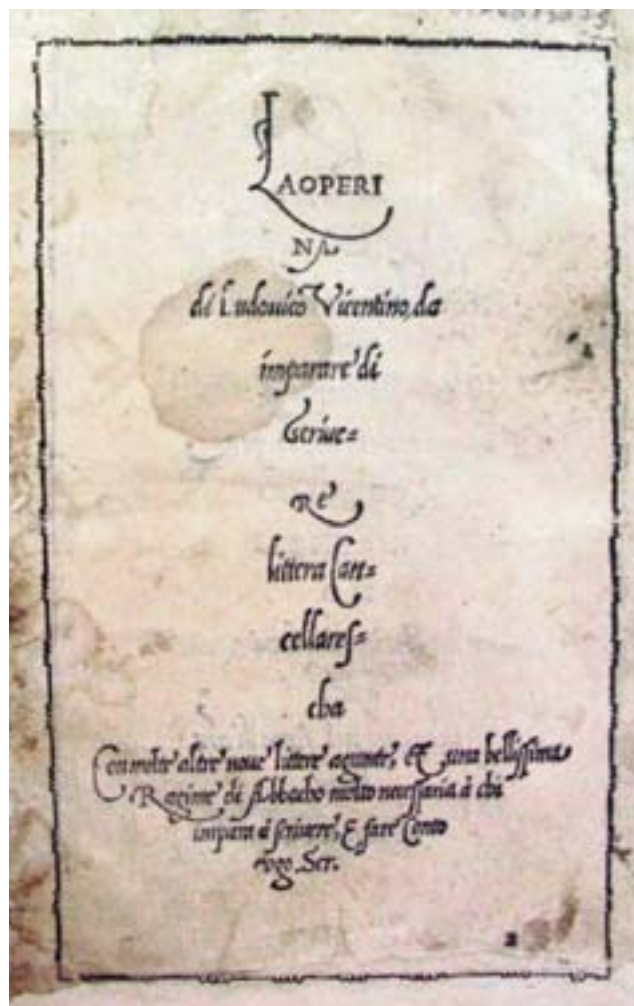 LAOPERI
NA
di Ludouico Vicentino, da
imparare di
scriue=
RE
littera Can=
cellares=
cha
Con molte altre noue littere agiunte, et una bellissima
Ragione di Abbacho molto necessaria à chi
impara à scriuere, & fare Conto
vgo. Scr.